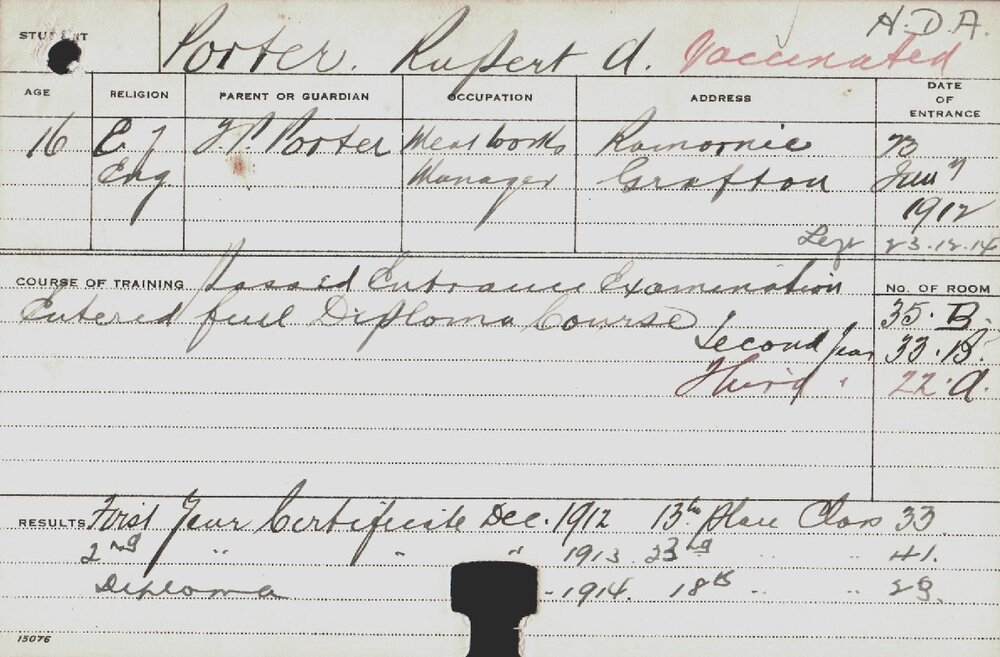 H.D.A.
STUDENT Porter. Rupert A. Vaccinated
AGE RELIGION PARENT OR GUARDIAN OCCUPATION ADDRESS DATE OF ENTRANCE
16 C of Porter Meat Works Ramornie 23
Eng. Manager Grafton Jany
1912
Left 23.12.14
COURSE OF TRAINING Passed Entrance Examination No. OF ROOM
Entered full Diploma Course 35.B.
Second Year 33.B.
Third " 22.A.
RESULTS First Year Certificate Dec. 1912 13th Place Class 33
2nd " " " 1913. 23rd " " 41.
Diploma - 1914. 18th " " 29.
15076